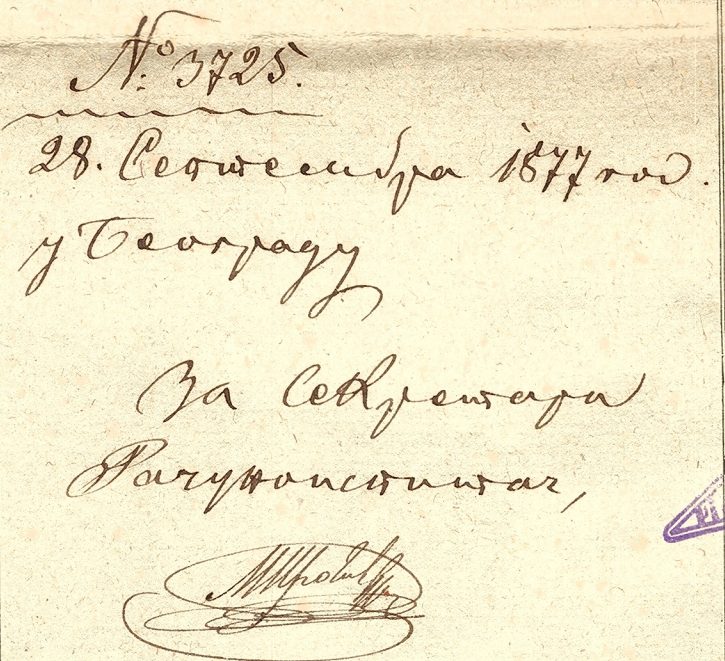 № 3725.
28. Септембра 1877 год.
у Београду
За Секретара
Рачуноиспитач,